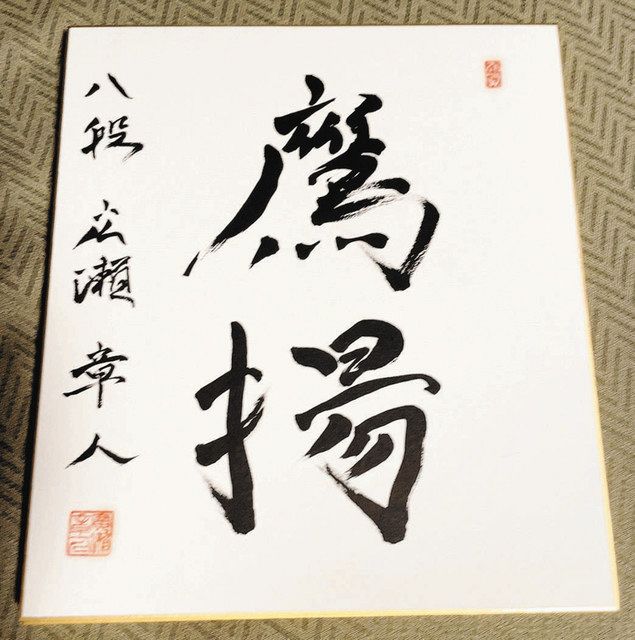 鷹揚
八段 広瀬章人